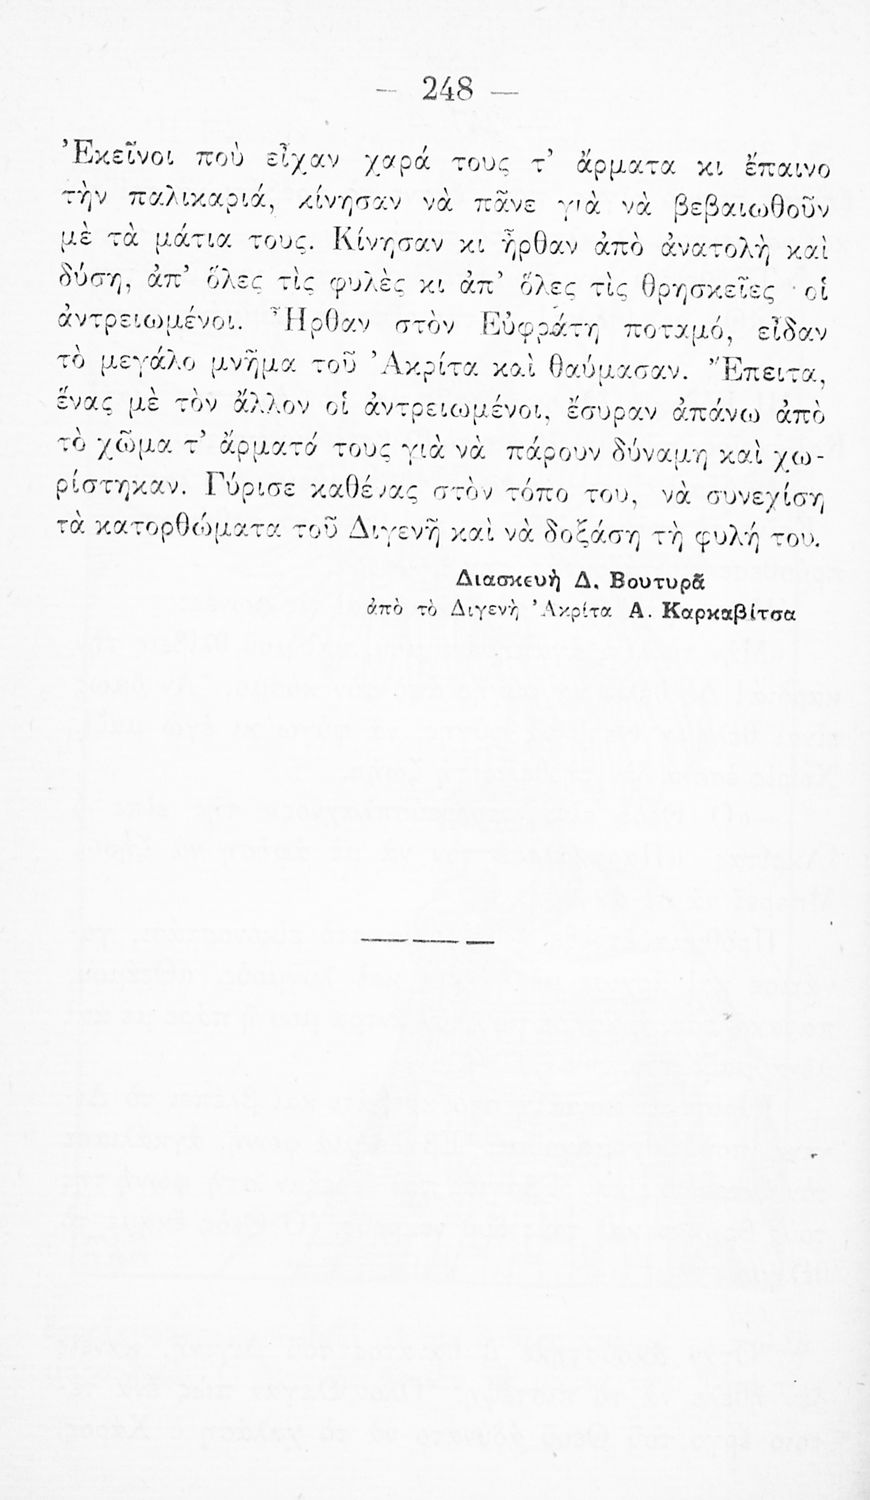 — 248 —
Ἐκεῖνοι ποὺ εἶχαν χαρά τους τ’ ἄρματα κι ἔπαινο
τὴν παλικαριά, κίνησαν νὰ πᾶνε γιὰ νὰ βεβαιωθοῦν
μὲ τὰ μάτια τους. Κίνησαν κι ἦρθαν ἀπὸ ἀνατολὴ καὶ
δύση, ἀπ’ ὅλες τὶς φυλὲς κι ἀπ’ ὅλες τὶς θρησκεῖες οἱ
ἀντρειωμένοι. Ἦρθαν στὸν Εὐφράτη ποταμό, εἶδαν
τὸ μεγάλο μνῆμα τοῦ Ἀκρίτα καὶ θαύμασαν. Ἔπειτα,
ἕνας μὲ τὸν ἄλλον οἱ ἀντρειωμένοι, ἔσυραν ἀπάνω ἀπὸ
τὸ χῶμα τ’ ἄρματά τους γιὰ νὰ πάρουν δύναμη καὶ χω-
ρίστηκαν. Γύρισε καθένας στὸν τόπο του, νὰ συνεχίση
τὰ κατορθώματα τοῦ Διγενῆ καὶ νὰ δοξάση τὴ φυλή του.
Διασκευὴ Δ. Βουτυρᾶ
ἀπὸ τὸ Διγενὴ Ἀκρίτα Α. Καρκαβίτσα